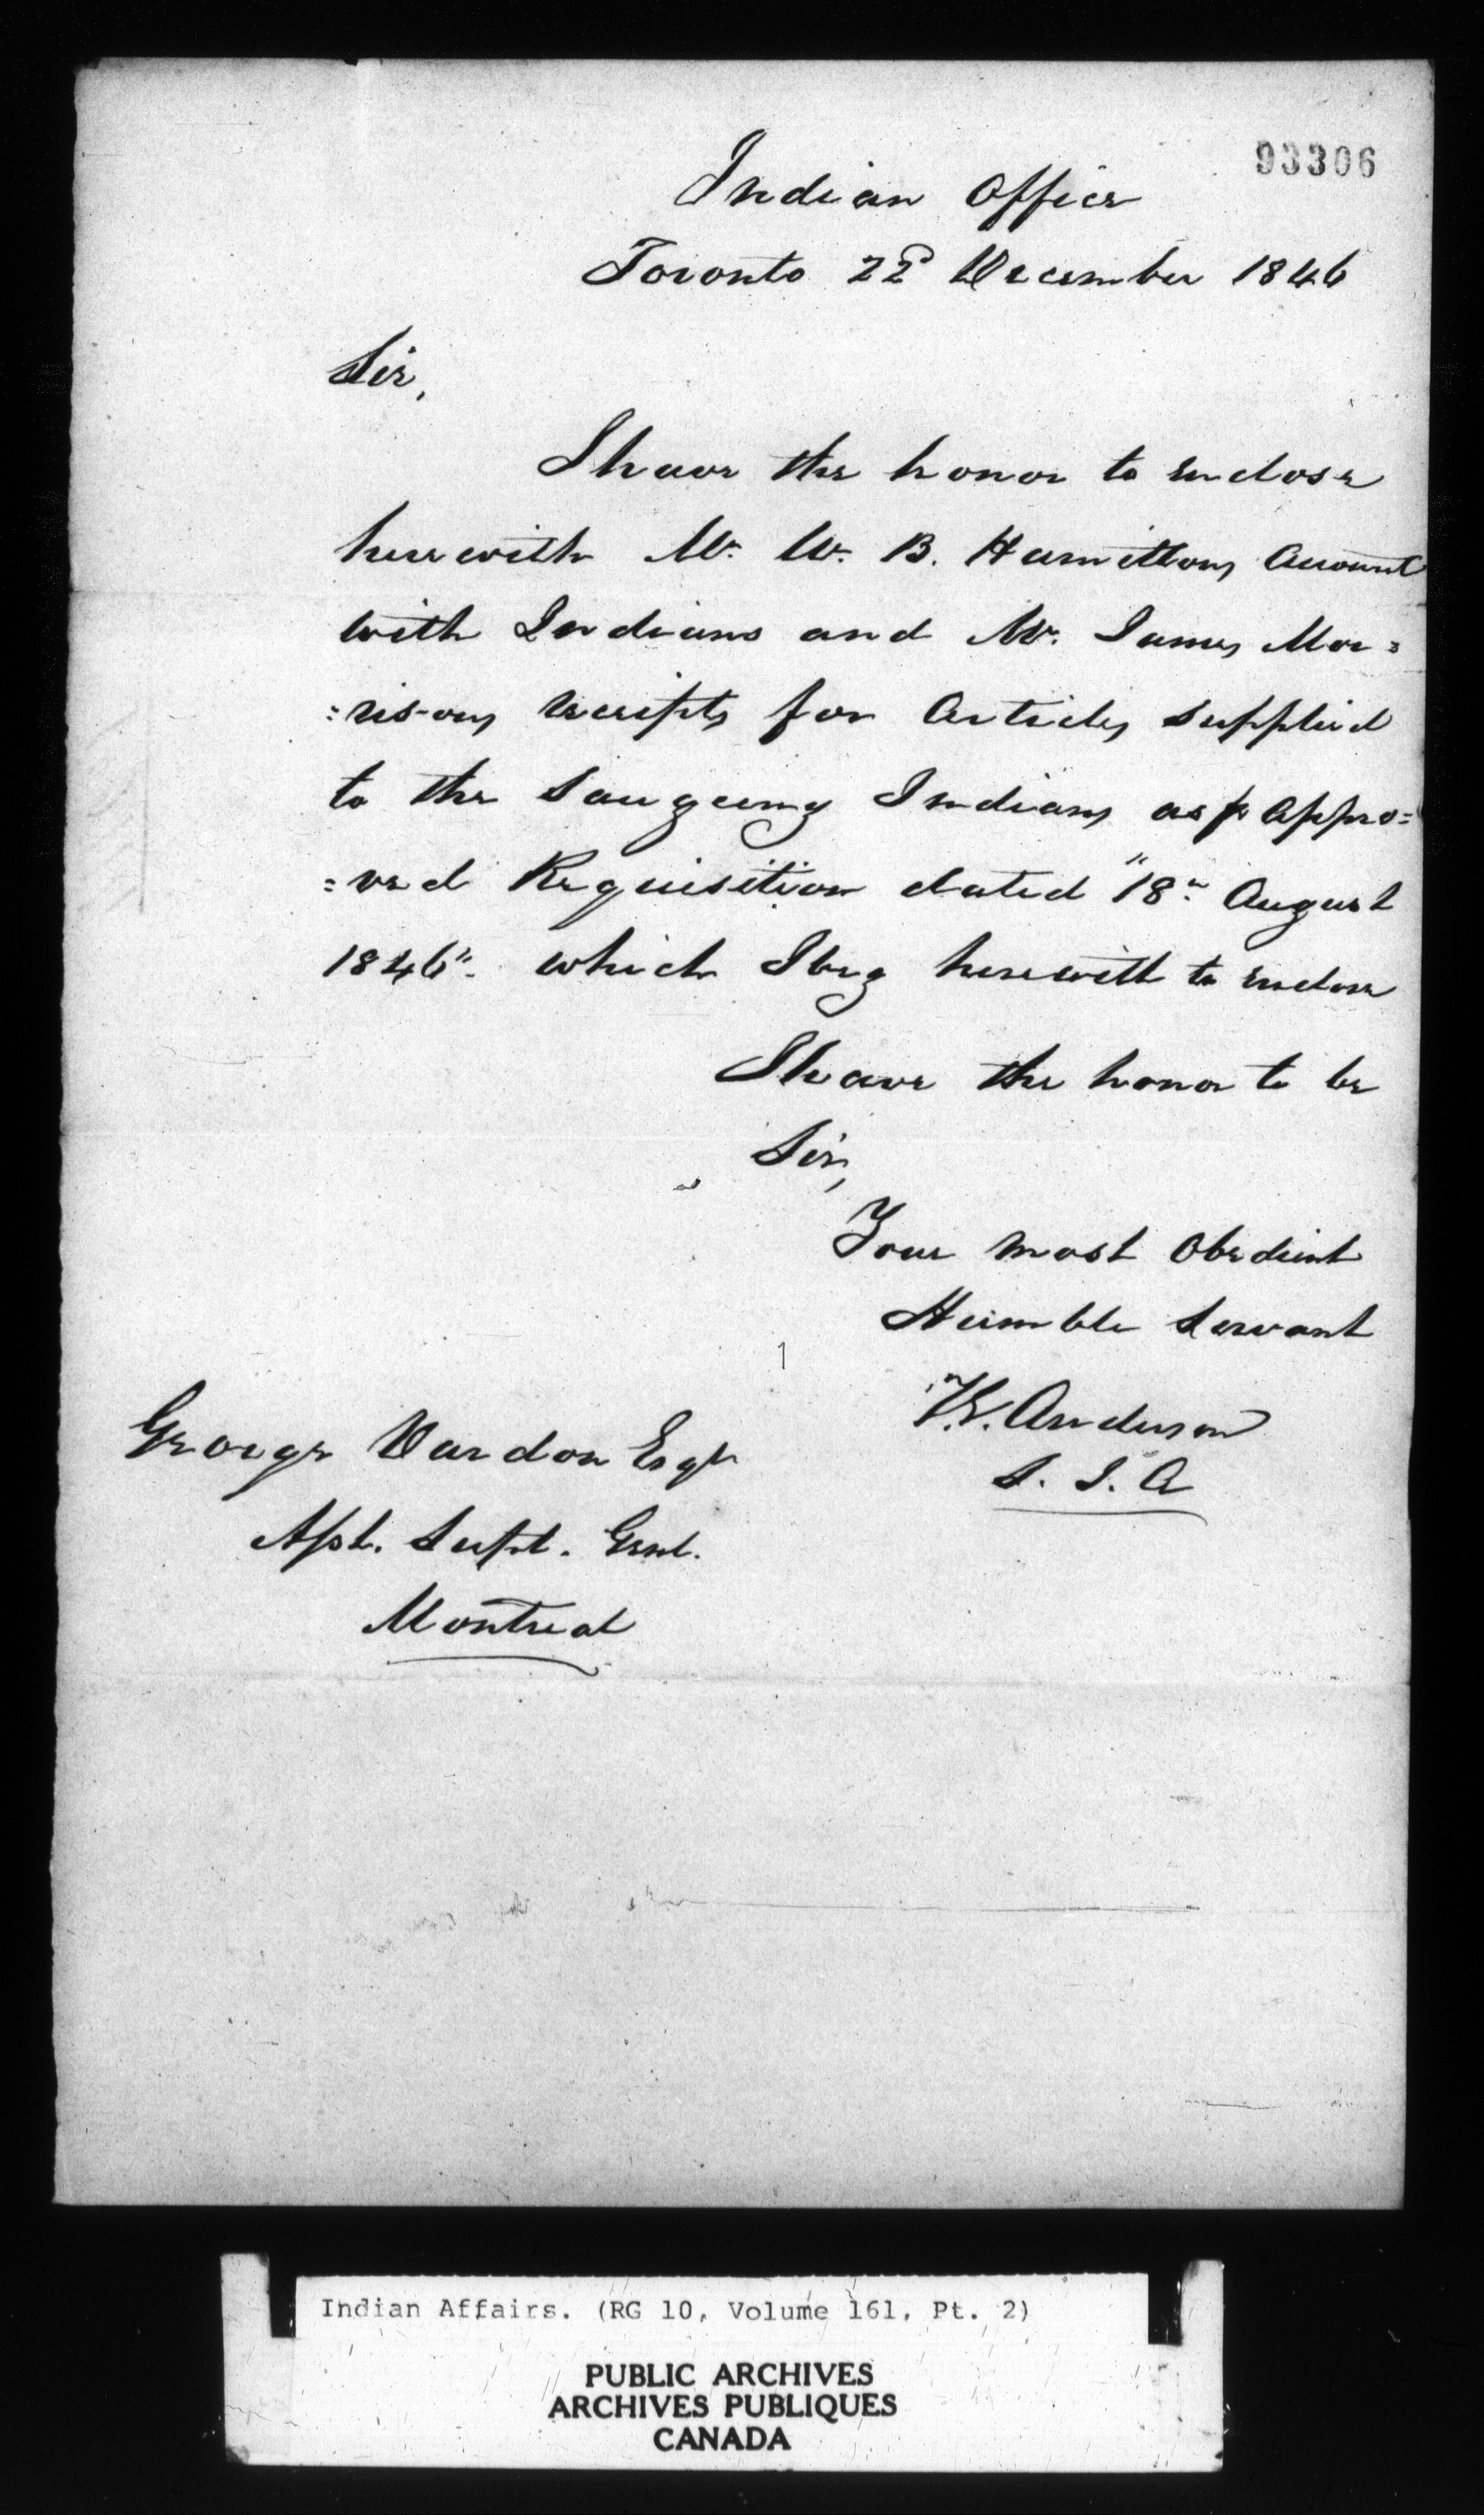 93306
Indian Office
Toronto 22d December 1846
Sir,
I have the honor to enclose
herewith Mr. W. B. Hamiltons Account
with Indians and Mr. James Mor=
=risons receipts for Articles supplied
to the Saugeeng Indians as pr appro=
=ved Requisition dated "18th August
1846" which I beg herewith to enclose
I have the honor to be
Sir,
Your most Obedient
Humble Servant
T.G. Anderson
S. I. A
George Vardon Esqr
Asst. Supt. Genl.
Montreal
Indian Affairs. (RG 10, Volume 161, Pt. 2)
PUBLIC ARCHIVES
ARCHIVES PUBLIQUES
CANADA